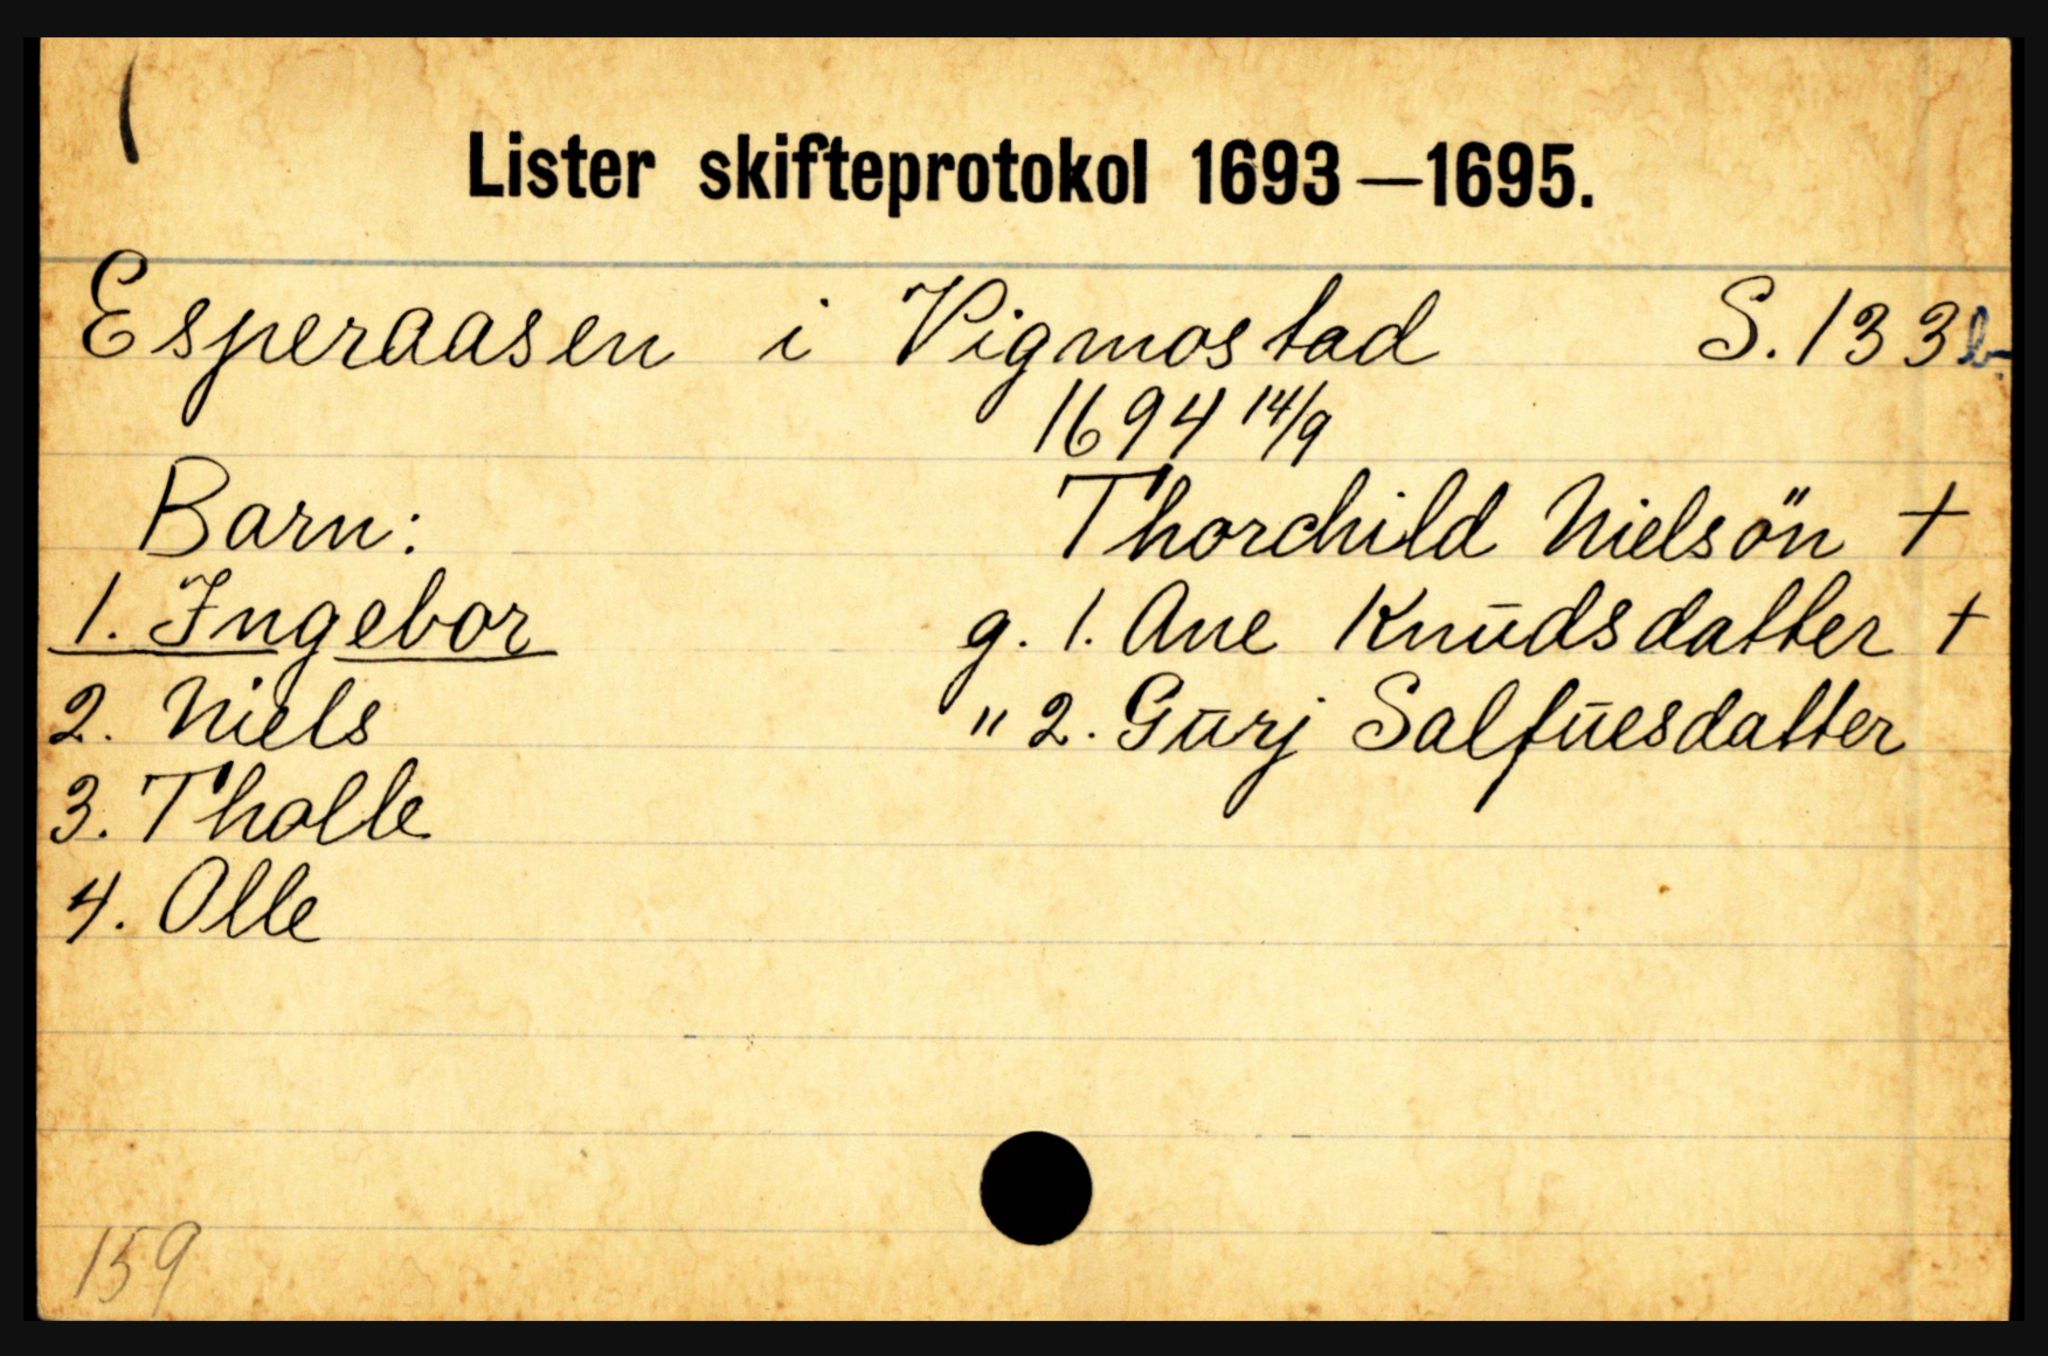 Lister skifteprotokol 1693—1695.
Esperaasen i Vigmostad S. 133b.
1694 14/9
Barn:
Thorchild Nielsön +
1. Ingebor
g. 1. Ane Knūdsdatter +
2. Niels
" 2. Gūrj Salfūesdatter
3. Tholle
4. Olle
159